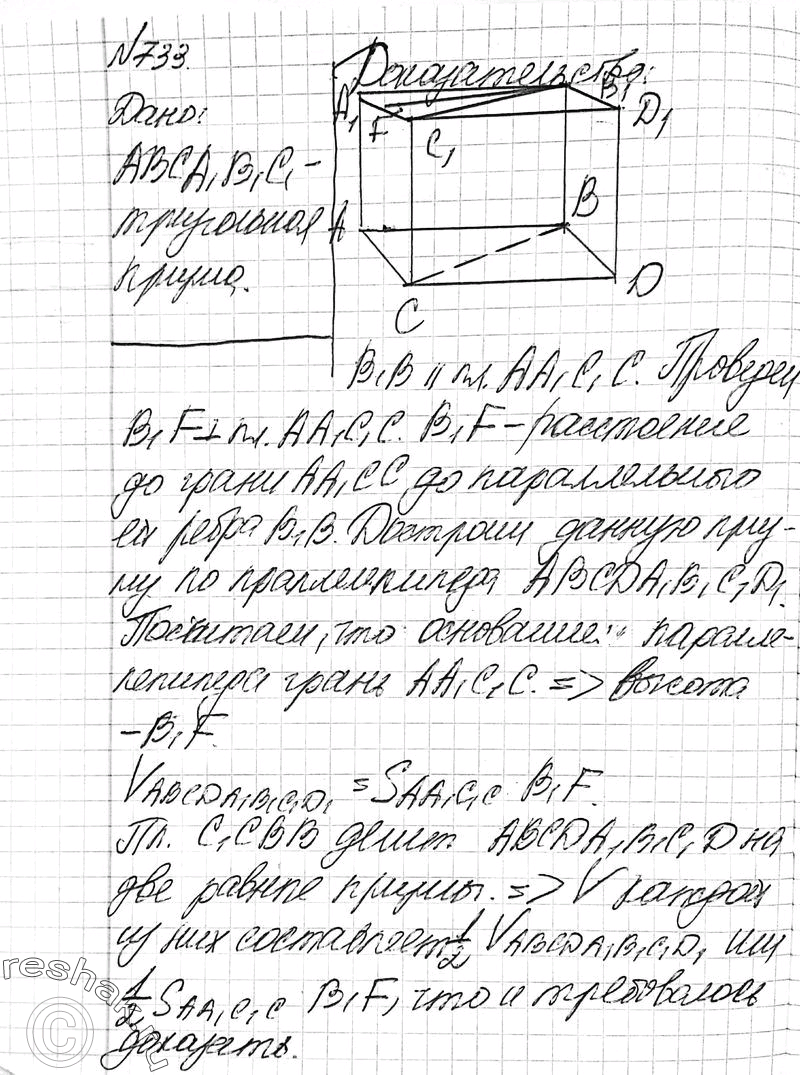 №733.
Дано:
ABCA₁B₁C₁ –
треугольная
призма.
Доказательство:
A₁ F C₁ B₁ D₁
A B
C D
B₁B || пл. AA₁C₁C. Проведем
B₁F ⊥ пл. AA₁C₁C. B₁F – расстояние
до грани AA₁CC до параллельного
ей ребра B₁B. Достроим данную приз-
му по праллелепипеда ABCDA₁B₁C₁D₁.
Посчитаем, что основание паралле-
лепипеда грань AA₁C₁C. => высота
– B₁F.
V ABCDA₁B₁C₁D₁ = S AA₁C₁C B₁F.
Пл. C₁CBB делит ABCDA₁B₁C₁D на
две равные призмы. => V каждой
из них составляет 1/2 V ABCDA₁B₁C₁D₁ или
1/2 S AA₁C₁C B₁F, что и требовалось
доказать.
reshak.ru
©